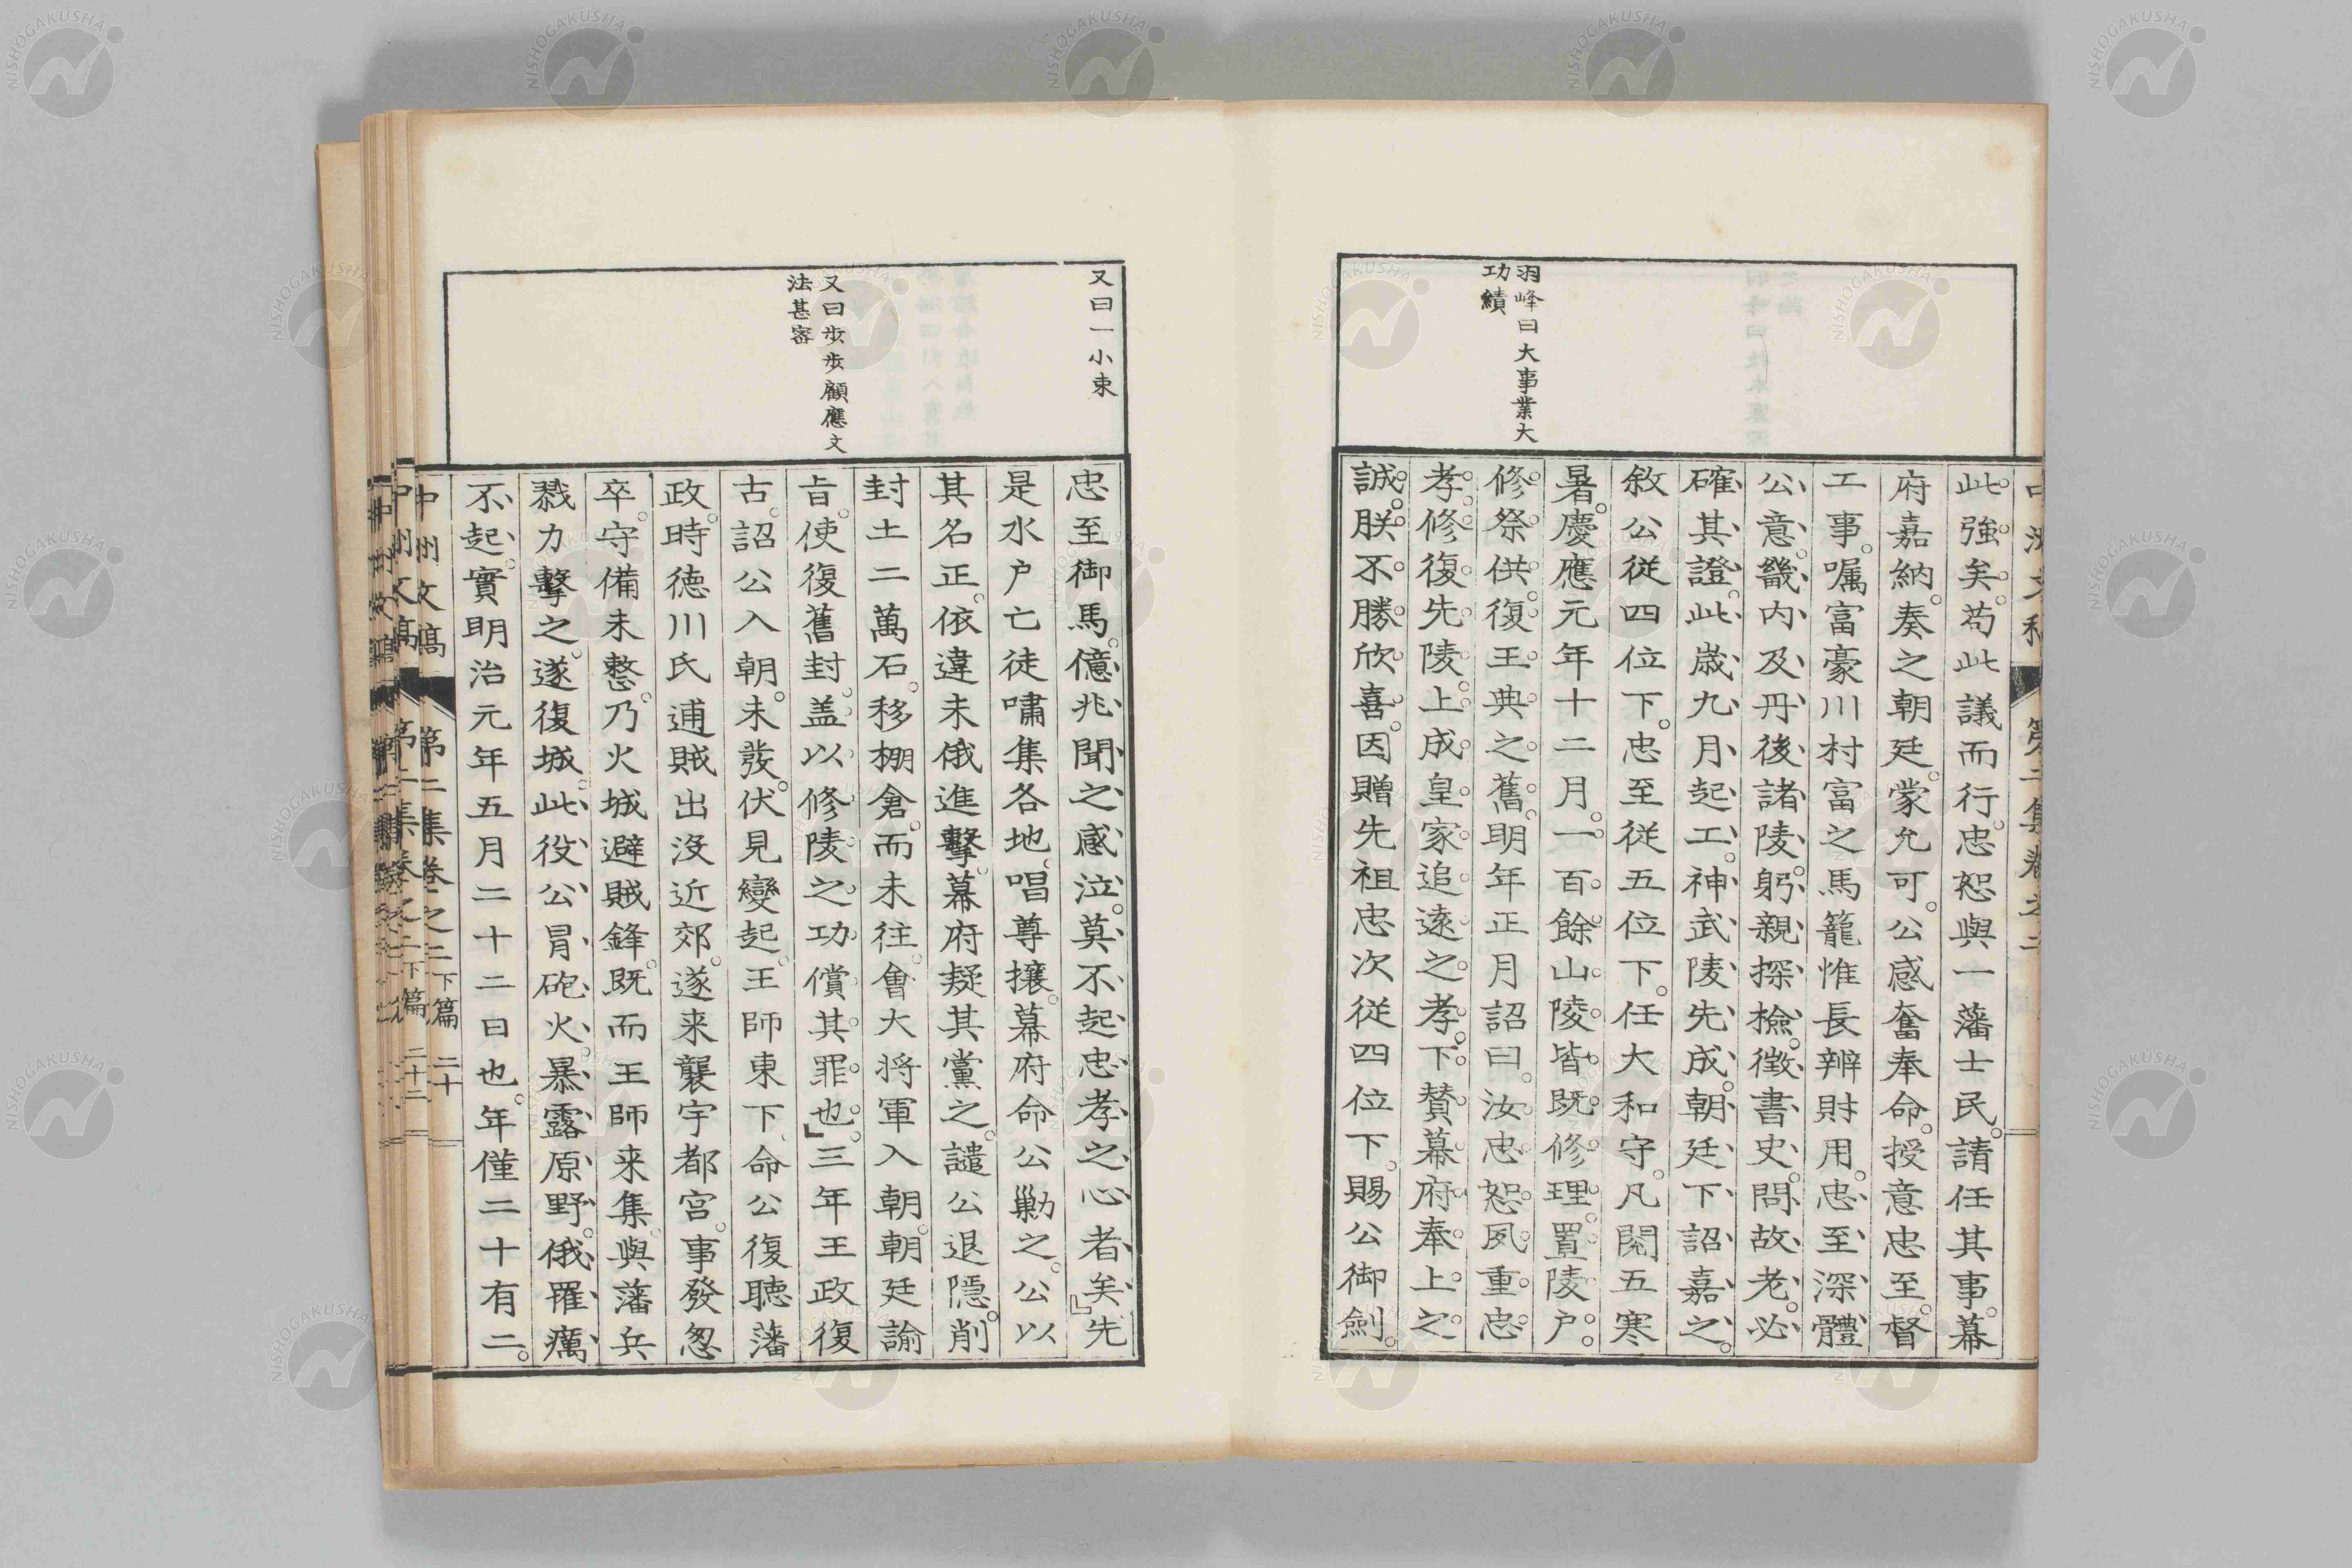 羽峰曰大事業大
功績
此強矣。苟此議而行。忠恕與一藩士民。請任其事。幕
府嘉納。奏之朝廷。蒙允可。公感奮奉命。授意忠至。督
工事。嘱富豪川村富之馬籠惟長辨財用。忠至深體
公意。畿内及丹後諸陵。躬親探檢。徴書史。問故老。必
確其證。此歳九月起工。神武陵先成。朝廷下詔嘉之。
敘公従四位下。忠至従五位下。任大和守。凡閲五寒
暑。慶應元年十二月。一百餘山陵。皆既修理。置陵户。
修祭供。復王典之舊。明年正月詔曰。汝忠恕夙重忠
孝。修復先陵。上成皇家追遠之孝。下賛幕府奉上之
誠。朕不勝欣喜。因贈先祖忠次従四位下。賜公御劍。
又曰一小束
又曰步步顧應文
法甚密
忠至御馬。億兆聞之感泣。莫不起忠孝之心者矣』先
是水户亡徒嘯集各地。唱尊攘。幕府命公勦之。公以
其名正。依違未俄進擊。幕府疑其黨之。譴公退隱。削
封土二萬石。移棚倉。而未往。會大將軍入朝。朝廷諭
旨。使復舊封。盖以修陵之功。償其罪也』三年王政復
古。詔公入朝。未發。伏見變起。王師東下。命公復聴藩
政。時德川氏逋賊出沒近郊。遂来襲宇都宮。事發怱
卒。守備未整。乃火城避賊鋒。既而王師来集。與藩兵
戮力擊之。遂復城。此役公冐砲火。暴露原野。俄罹癘
不起。實明治元年五月二十二日也。年僅二十有二。
中州文稿 第二集卷之二下篇 二十